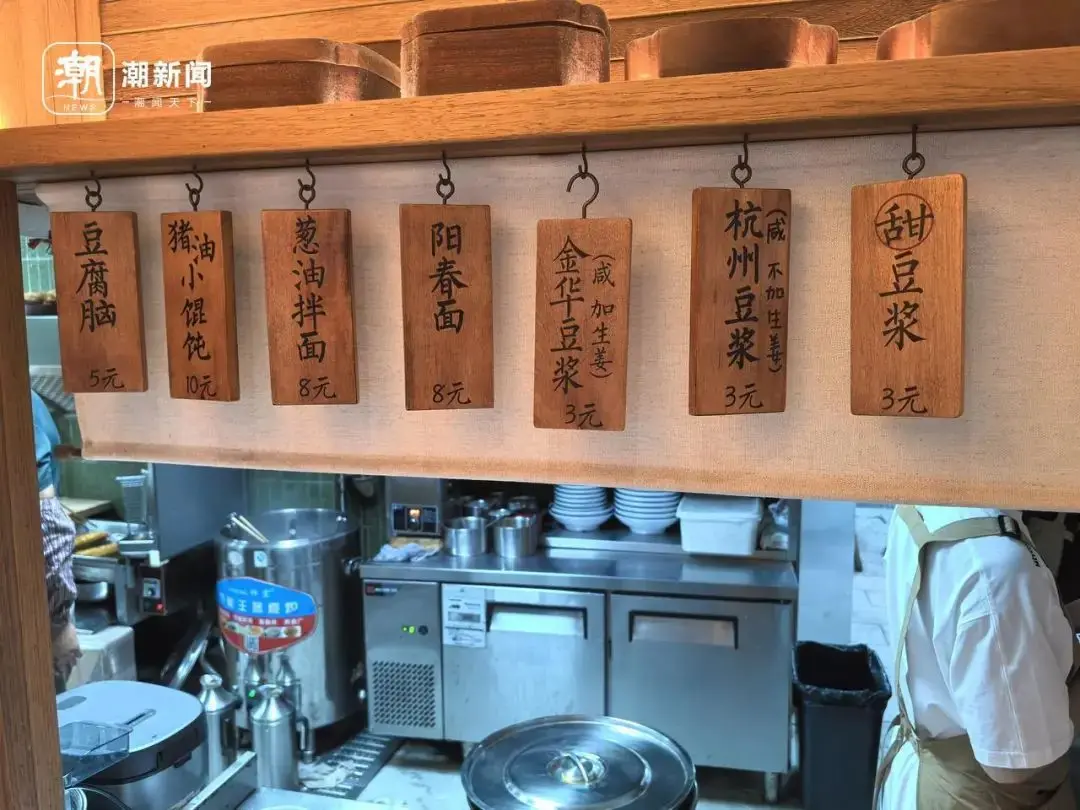 潮
NEWS
潮新闻
潮闻天下
豆腐脑
5元
猪油小馄饨
10元
葱油拌面
8元
阳春面
8元
金华豆浆
(咸 加生姜)
3元
杭州豆浆
(咸 不加生姜)
3元
甜
豆浆
3元